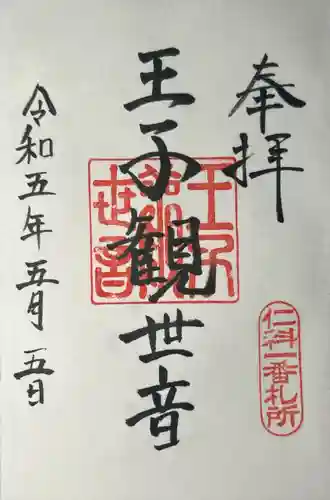 奉拝
仁科一番札所
王子観世音
王子観世音
令和五年五月五日